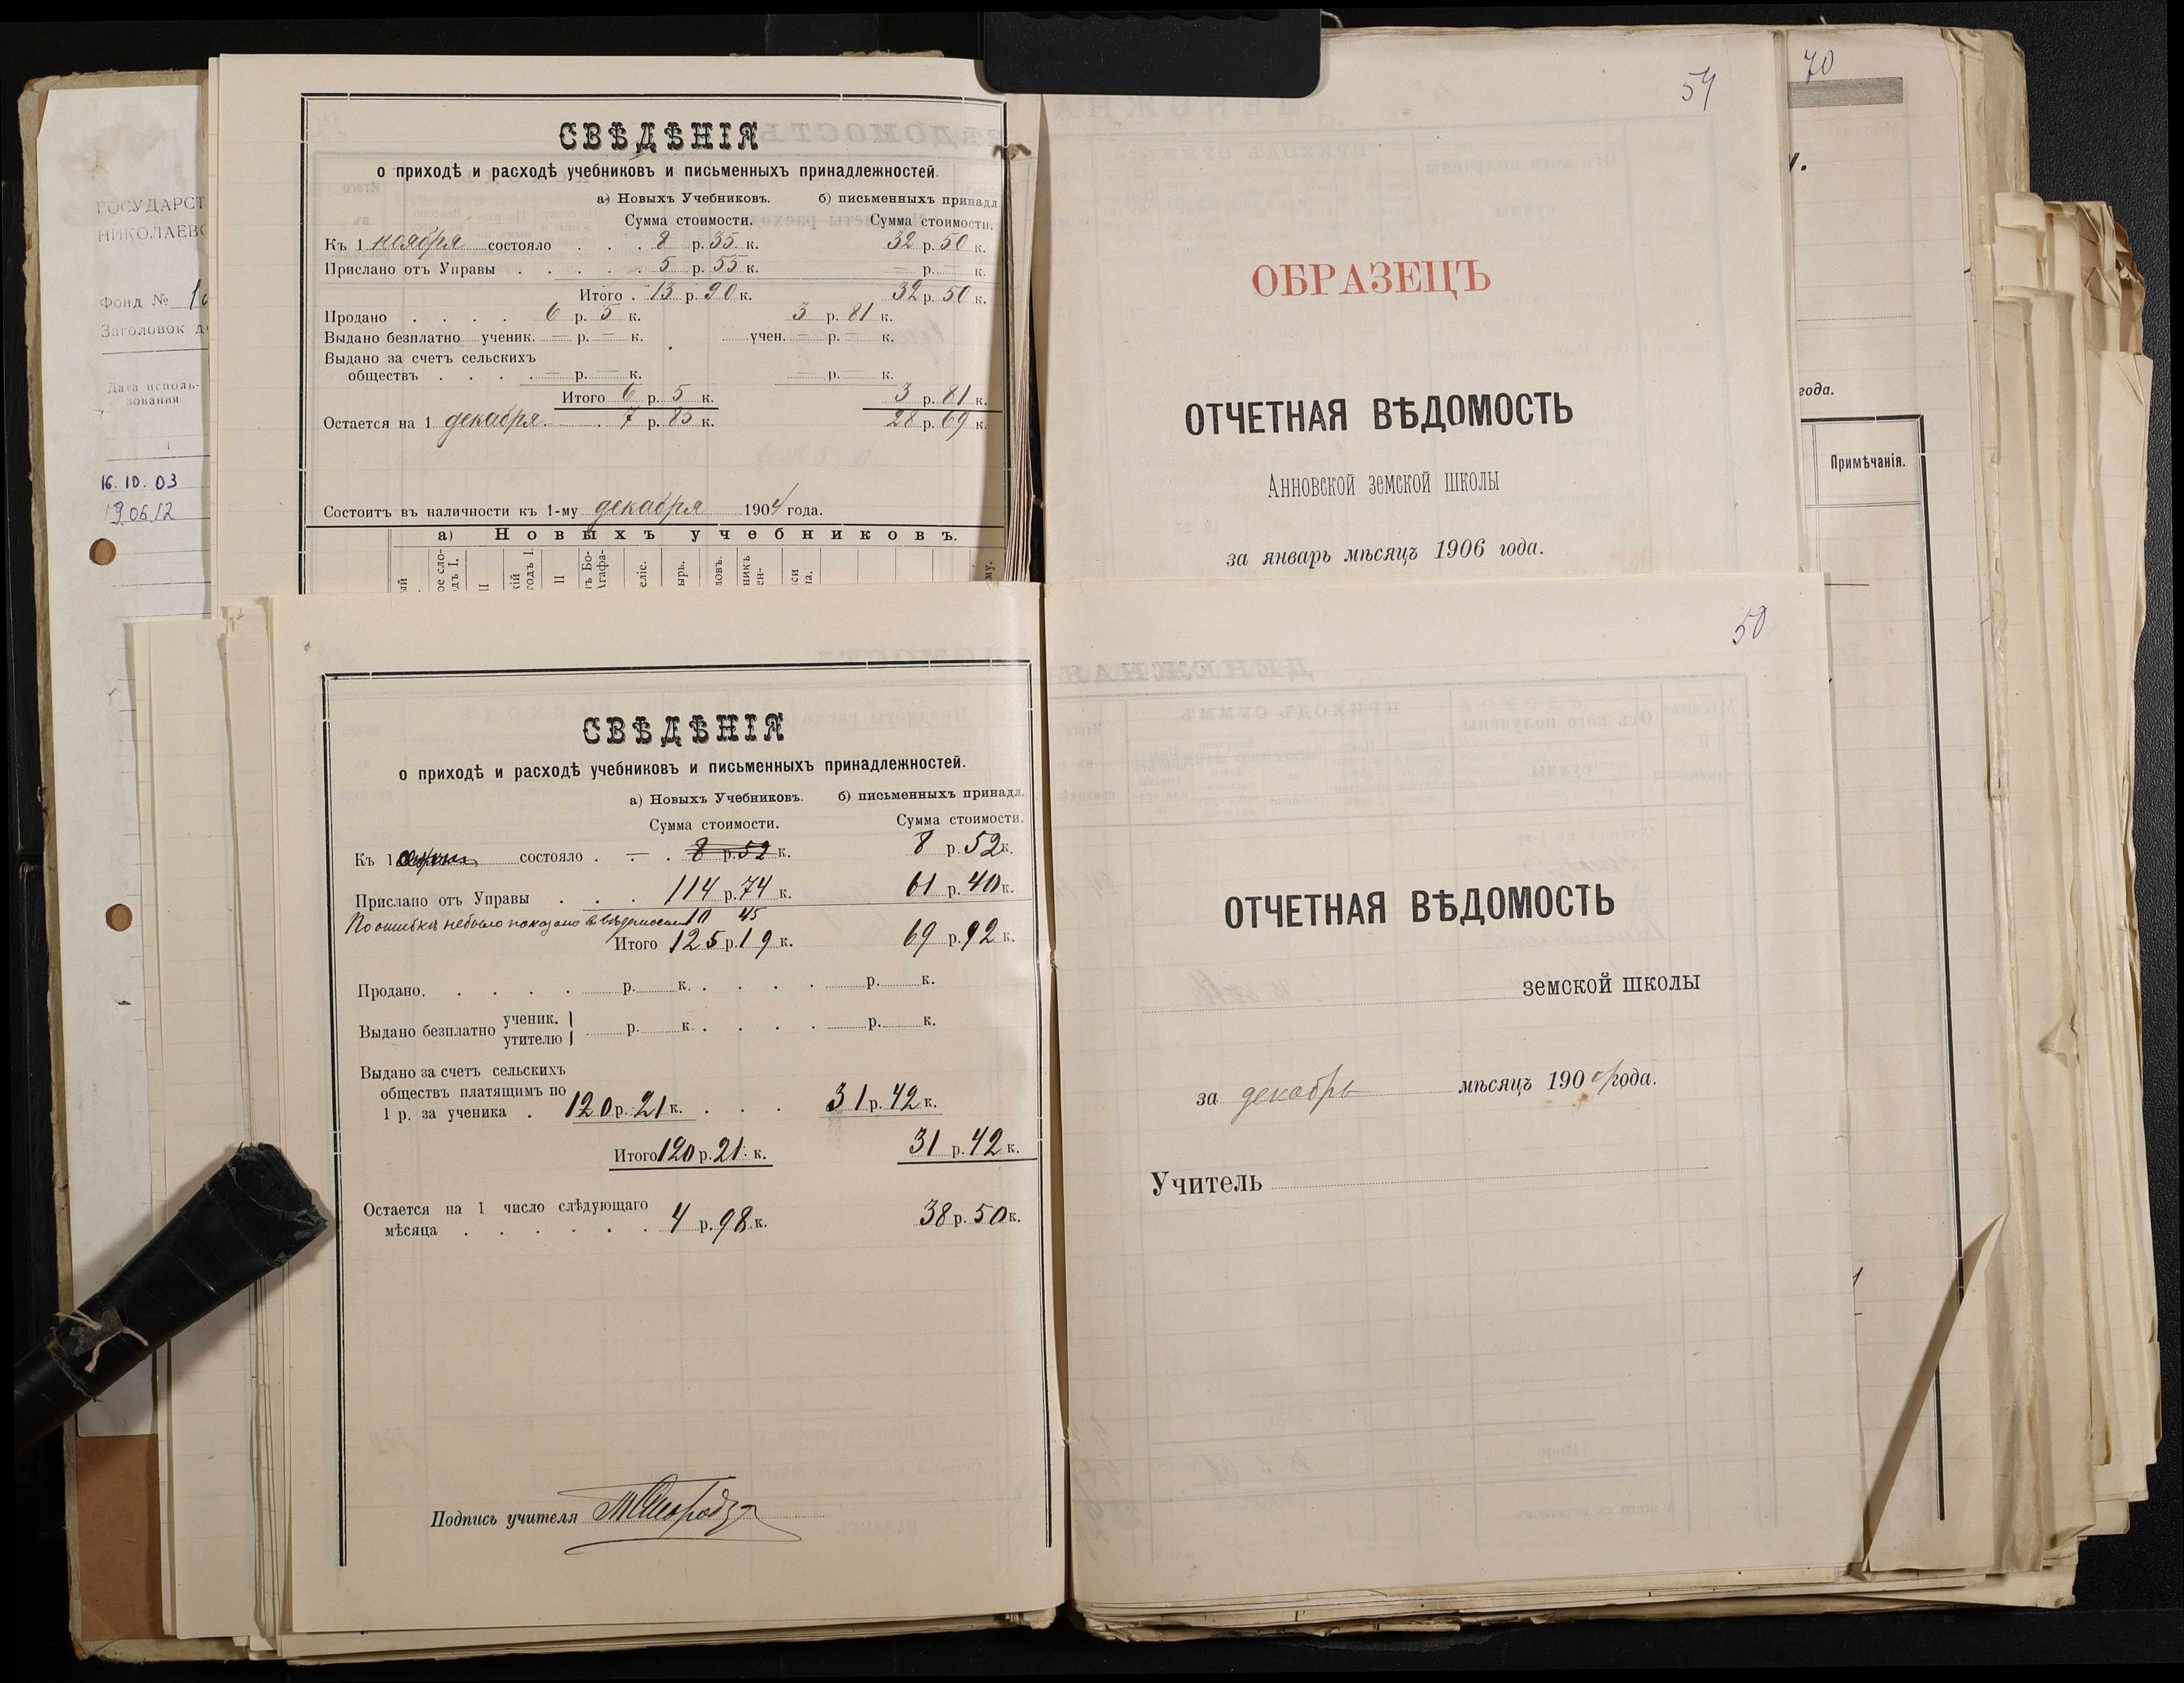 ГОСУДАРСТ
НИКОЛАЕВС
Фонд №
Заголовок д
Дата исполь-
зования
1
16.10.03
190612
СВѢДѢНІЯ
о приходѣ и расходѣ учебниковъ и письменныхъ принадлежностей.
а) Новыхъ Учебниковъ. б) письменныхъ принадл
Сумма стоимости. Сумма стоимости.
Къ 1 ноября состояло . . . 8 р. 35 к. 32 р. 50 к.
Прислано отъ Управы . . . . . 5 р. 55 к. — р. — к.
Итого . 13 р. 90 к. 32 р. 50 к.
Продано . . . . 6 р. 5 к. 3 р. 81 к.
Выдано безплатно ученик. — р. — к. учен. — р. — к.
Выдано за счетъ сельскихъ
обществъ . . . . — р. — к. — р. — к.
Итого 6 р. 5 к. 3 р. 81 к.
Остается на 1 декабря . 7 р. 85 к. 28 р. 69 к.
Состоитъ въ наличности къ 1-му декабря 1904 года.
а) Новыхъ учебниковъ.
54
ОБРАЗЕЦЪ
ОТЧЕТНАЯ ВѢДОМОСТЬ
Анновской земской школы
за январь мѣсяцъ 1906 года.
70
года.
Примѣчанія.
СВѢДѢНІЯ
о приходѣ и расходѣ учебниковъ и письменныхъ принадлежностей.
а) Новыхъ Учебниковъ. б) письменныхъ принадл.
Сумма стоимости. Сумма стоимости.
Къ 1 состояло . — . 8 р. 52 к. 8 р. 52 к.
Прислано отъ Управы . . . 114 р. 74 к. 61 р. 40 к.
По ошибкѣ небыло показано въ вѣдомости 10 45
Итого 125 р. 19 к. 69 р. 92 к.
Продано. . . . . р. к. . . . . р. к.
Выдано безплатно ученик. утителю } р. к. . . . . р. к.
Выдано за счетъ сельскихъ
обществъ платящимъ по
1 р. за ученика . 120 р. 21 к. . . . 31 р. 42 к.
Итого 120 р. 21 к. 31 р. 42 к.
Остается на 1 число слѣдующаго
мѣсяца . . . . . . 4 р. 98 к. 38 р. 50 к.
Подпись учителя
50
ОТЧЕТНАЯ ВѢДОМОСТЬ
земской школы
за декабрь мѣсяцъ 190 года.
Учитель